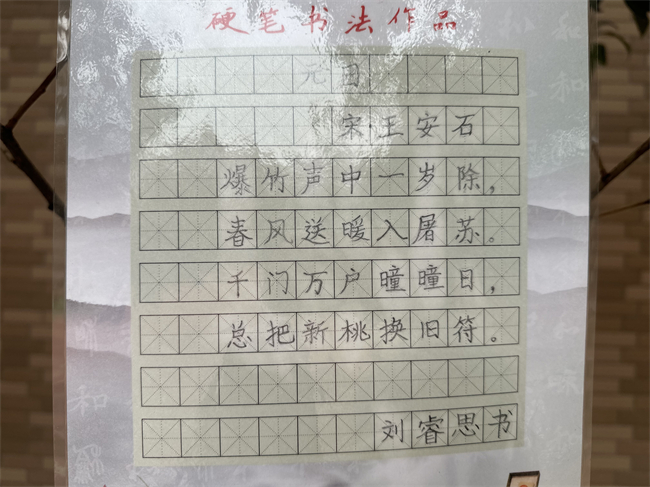 硬笔书法作品
元日
宋·王安石
爆竹声中一岁除，
春风送暖入屠苏。
千门万户曈曈日，
总把新桃换旧符。
刘睿思书